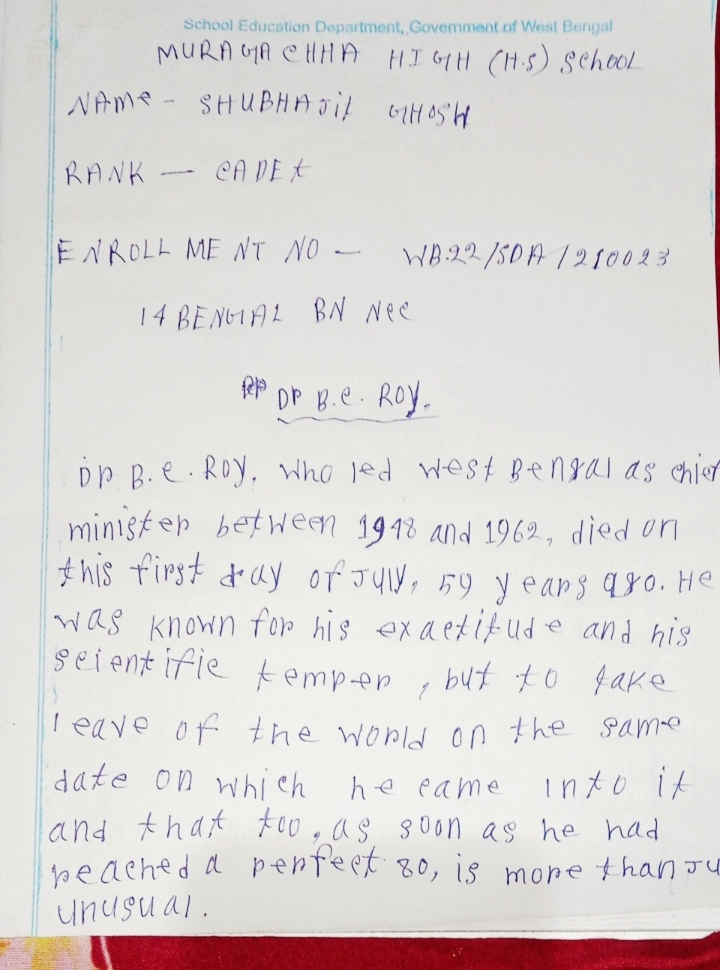 School Education Department, Government of West Bengal
MURAGACHHA HIGH (H.S) SchooL
NAMe - SHUBHAJit GHOSH
RANK — CADEt
ENROLLMENT NO — WB22/SDA/210023
14 BENGAL BN Ncc
DR B.C. ROY.
DR B.C. ROY, who led West Bengal as chief
minister between 1948 and 1962, died on
this first day of July, 59 years ago. He
was known for his exactitude and his
scientific temper, but to take
leave of the world on the same
date on which he came into it
and that too, as soon as he had
reached a perfect 80, is more than ju
unusual.